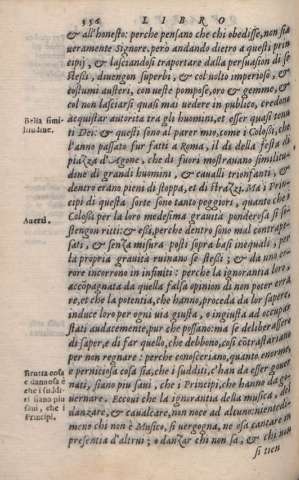 356 LIBRO
& all'honesto: perche pensano che chi obedisse, non sia
ueramente Signore. però andando dietro a questi prin
cipij, & lasciandosi traportare dalla persuasion di se
stessi, diuengon superbi, & col uolto imperioso, &
costumi austeri, con ueste pompose, oro & gemme, &
col non lasciarsi quasi mai uedere in publico, credono
Bella simi
litudine.
acquistar autorita tra gli huomini, et esser quasi tenu
ti Dei: & questi sono al parer mio, come i Colossi, che
l'anno passato fur fatti a Roma, il dì della festa di
piazza d'Agone, che di fuori mostrauano similitu
dine di grandi huomini, & caualli trionfanti, &
dentro erano pieni di stoppa, et di strazzi. Ma i Prin
cipi di questa sorte sono tanto peggiori, quanto che i
Auerti.
Colossi per la loro medesima grauità ponderosa si so
stengon ritti: & essi, perche dentro sono mal contrape
sati, & senza misura posti sopra basi inequali, per
la propria grauità ruinano se stessi; & da uno er
rore incorrono in infiniti: perche la ignorantia loro,
accompagnata da quella falsa opinion di non poter erra
re, et che la potentia, che hanno, proceda da lor sapere,
induce loro per ogni uia giusta, o ingiusta ad occupar
stati audacemente, pur che possano: ma se deliberassero
di saper, e di far quello, che debbono, così cōtrastariano
per non regnare: perche conosceriano, quanto enorme,
Brutta cosa
e dannosa è
che i suddi-
ti siano piu
saui, che i
Principi.
e perniciosa cosa sia, che i sudditi, c'han da esser gouer
nati, siano piu saui, che i Principi, che hanno da go-
uernare. Eccoui che la ignorantia della musica, del
danzare, & caualcare, non noce ad alcuno: nientedi-
meno chi non è Musico, si uergogna, ne osa cantare in
presentia d'altrui; o danzar chi non sa, & chi non
si tien